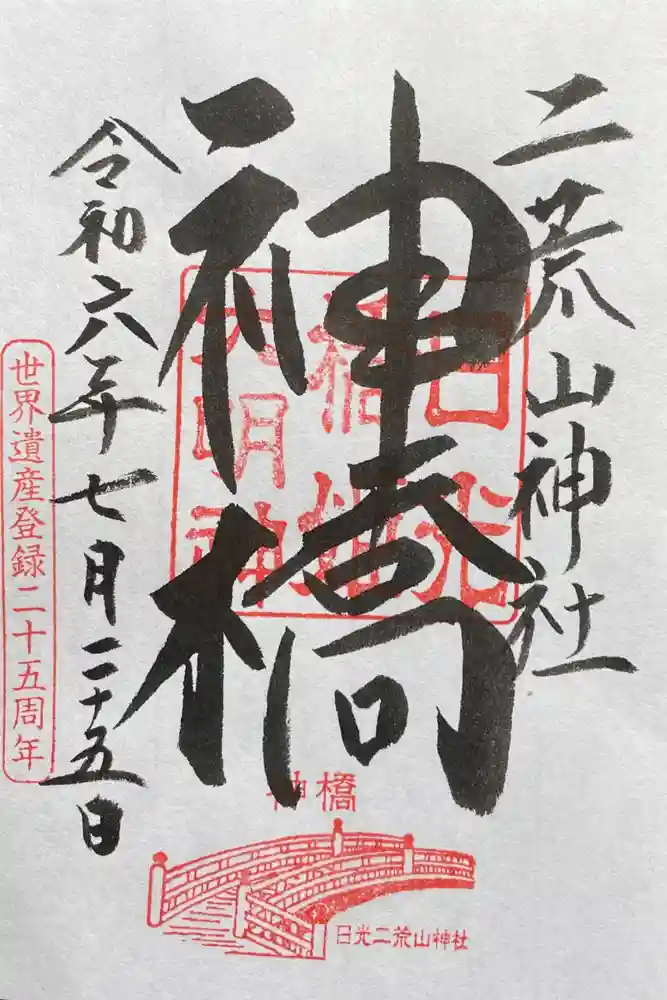 二荒山神社
神橋
日光
橋姫
大明神
令和六年七月二十五日
世界遺産登録二十五周年
神橋
日光二荒山神社